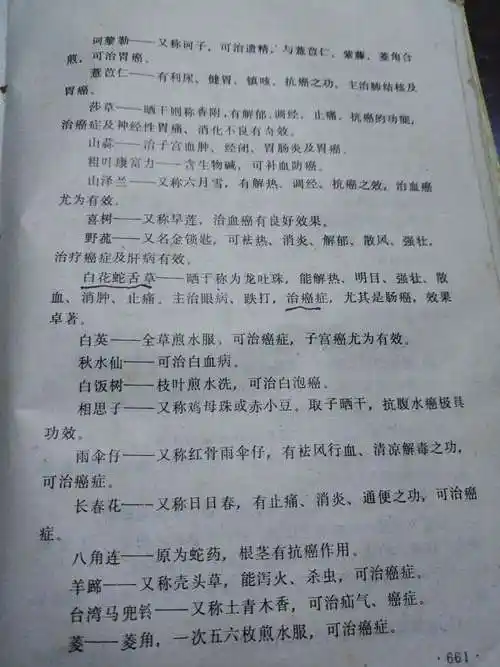 诃藜勒——又称诃子，可治遗精，与薏苡仁、紫藤、菱角合
煎，可治胃癌。
薏苡仁——有利尿、健胃、镇咳、抗癌之功，主治肺结核及
胃癌。
莎草——晒干则称香附，有解郁、调经、止痛、抗癌的功能，
治癌症及神经性胃痛、消化不良有奇效。
山蒜——治子宫血肿、经闭、胃肠炎及胃癌。
粗叶康富力——含生物碱，可补血防癌。
山泽兰——又称六月雪，有解热、调经、抗癌之效，治血癌
尤为有效。
喜树——又称旱莲，治血癌有良好效果。
野菰——又名金锁匙，可祛热、消炎、解郁、散风、强壮，
治疗癌症及肝病有效。
白花蛇舌草——晒干称为龙吐珠，能解热、明目、强壮、散
血、消肿、止痛。主治眼病、跌打，治癌症，尤其是肠癌，效果
卓著。
白英——全草煎水服，可治癌症，子宫癌尤为有效。
秋水仙——可治白血病。
白饭树——枝叶煎水洗，可治白泡癌。
相思子——又称鸡母珠或赤小豆。取子晒干，抗腹水癌极具
功效。
雨伞仔——又称红骨雨伞仔，有祛风行血、清凉解毒之功，
可治癌症。
长春花——又称日日春，有止痛、消炎、通便之功，可治癌
症。
八角连——原为蛇药，根茎有抗癌作用。
羊蹄——又称壳头草，能泻火、杀虫，可治癌症。
台湾马兜铃——又称土青木香，可治疝气、癌症。
菱——菱角，一次五六枚煎水服，可治癌症。
·661·